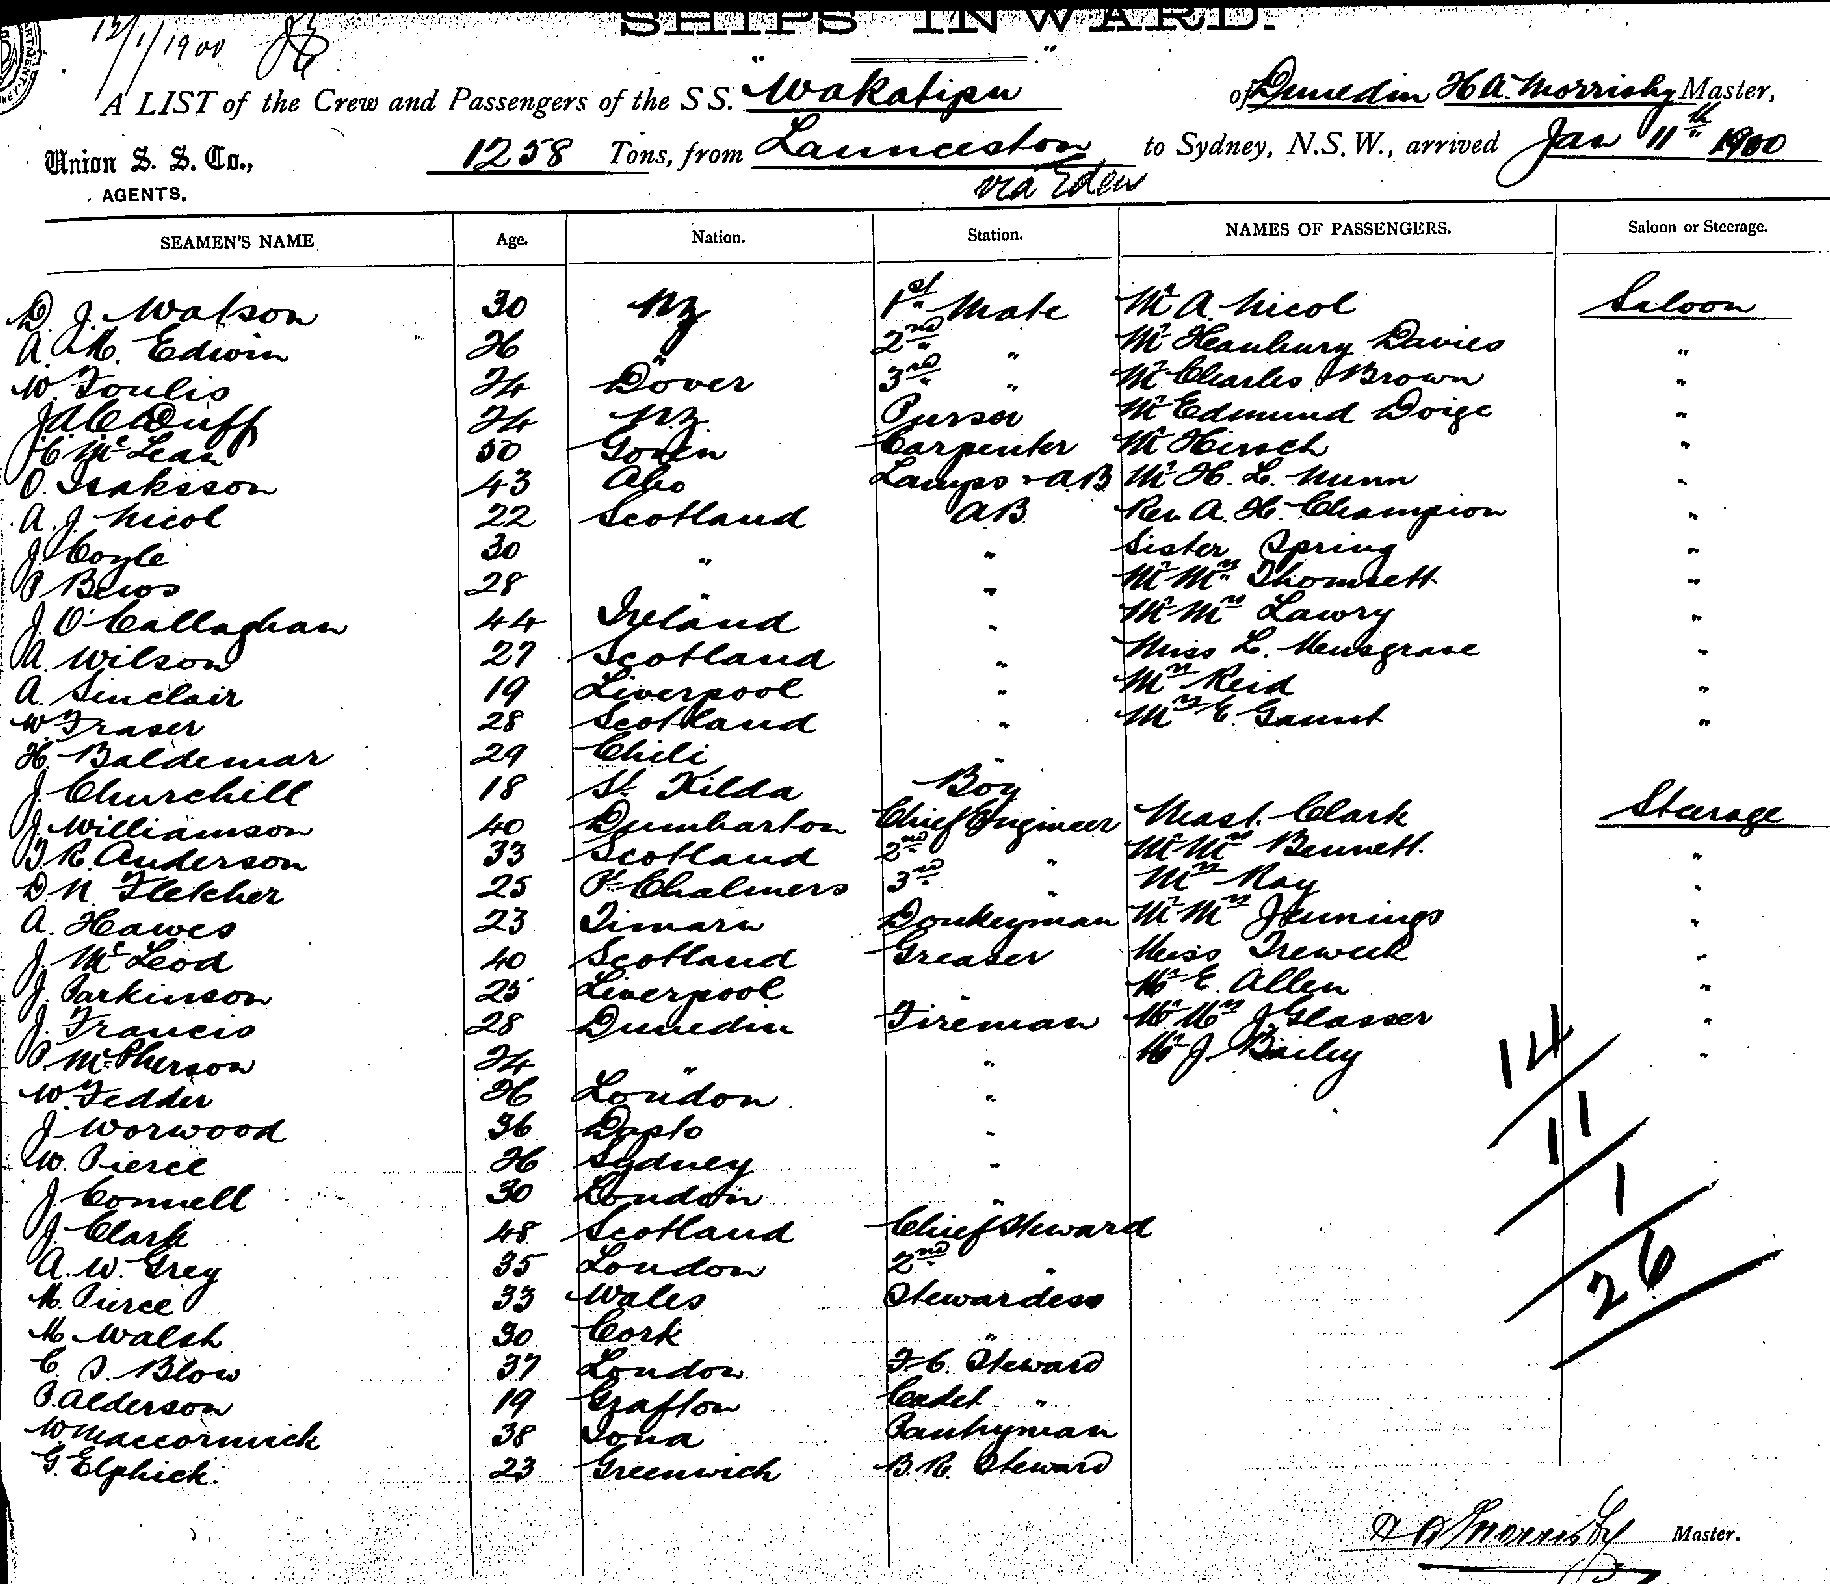 SHIPS INWARD.
12/1/1900
A LIST of the Crew and Passengers of the S S. "Wakatipu" of Dunedin H A. Morrisby Master,
Union S. S. Co., AGENTS. 1258 Tons, from Launceston to Sydney, N.S.W., arrived Jan 11th 1900
via Eden
SEAMEN'S NAME Age. Nation. Station. NAMES OF PASSENGERS. Saloon or Steerage.
D. J. Watson 30 NZ 1st Mate Mr A. Nicol Saloon
A. M. Edwin 26 " 2nd " Mr Hanbury Davies "
W Foulis 24 Dover 3rd " Mr Charles Brown "
J A C Duff 24 NZ. Purser Mr Edmund Doige "
H Mc Lean 50 Carpenter Mr Hirsch "
O. Isaksson 43 Abo Lamps & A.B Mr H. L. Nunn "
A. J. Nicol 22 Scotland A.B. Rev A. H. Champion "
J Coyle 30 " " Sister Spring "
P Bews 28 " " Mr Mrs Thomsett "
J O'Callaghan 44 Ireland " Mr Mrs Lawry "
A. Wilson 27 Scotland " Miss L. Musgrave "
A Sinclair 19 Liverpool " Mrs Reid "
W. Fraser 28 Scotland " Mrs E. Gaunt "
H. Baldemar 29 Chili "
J. Churchill 18 St Kilda Boy
J. Williamson 40 Dumbarton Chief Engineer Mast. Clark Steerage
T R. Anderson 33 Scotland 2nd " Mr Mrs Bennett "
D. N. Fletcher 25 Pt Chalmers 3rd " Mrs Ray "
A. Hawes 23 Timaru Donkeyman Mr Mrs Jennings "
J. McLeod 40 Scotland Greaser Miss Treweek "
J. Parkinson 25 Liverpool " Mr E. Allen "
J. Francis 28 Dunedin Fireman Mr Mrs J Glasser "
P McPherson 24 " " Mr J. Bailey "
W. Tedder 26 London "
J Worwood 36 Dapto "
W. Pierce 26 Sydney "
J Connell 30 London "
J. Clark 48 Scotland Chief Steward
A. W. Grey 35 London 2nd "
M. Pierce 33 Wales Stewardess
M Walsh 30 Cork "
C. T. Blow 37 London F. C. Steward
P. Alderson 19 Grafton Cadet "
W MacCormick 38 Iona Pantryman
G. Elphick. 23 Greenwich B. R. Steward
14
11
1
26
H A Morrisby Master.